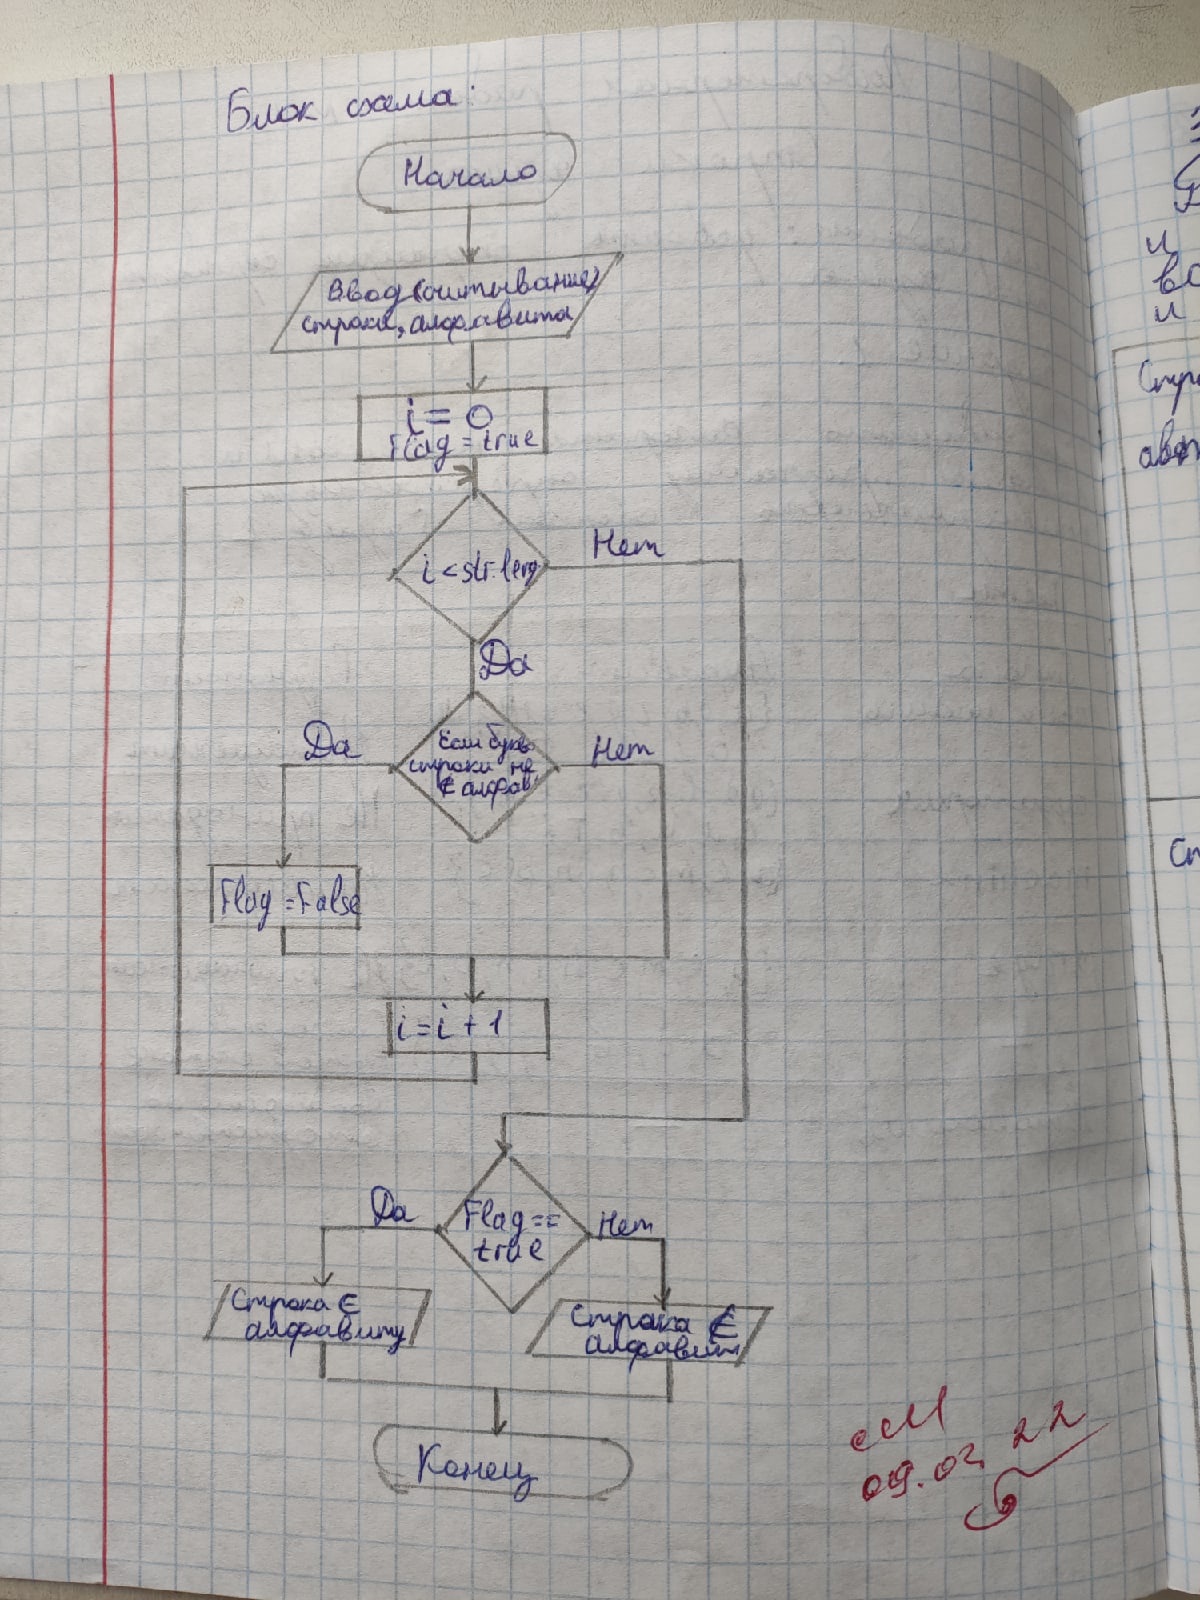 Блок схема:
Начало
Ввод (считывание)
строки, алфавита
i = 0
Flag = true
i < str.leng
Нет
Да
Если буква
строки не
∉ алфав
Да
Нет
Flag = False
i = i + 1
Flag ==
true
Да
Нет
Строка ∈
алфавиту
Строка ∉
алфавит
Конец
см
09.02.22
и
во
и
Стро
Ст